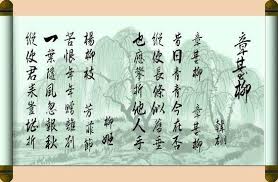 章臺柳
韓翃
章臺柳
昔日青青今在否
縱使長條似舊垂
也應攀折他人手
柳姬
楊柳枝 芳菲節
苦恨年年贈離別
一葉隨風忽報秋
縱使君來豈堪折